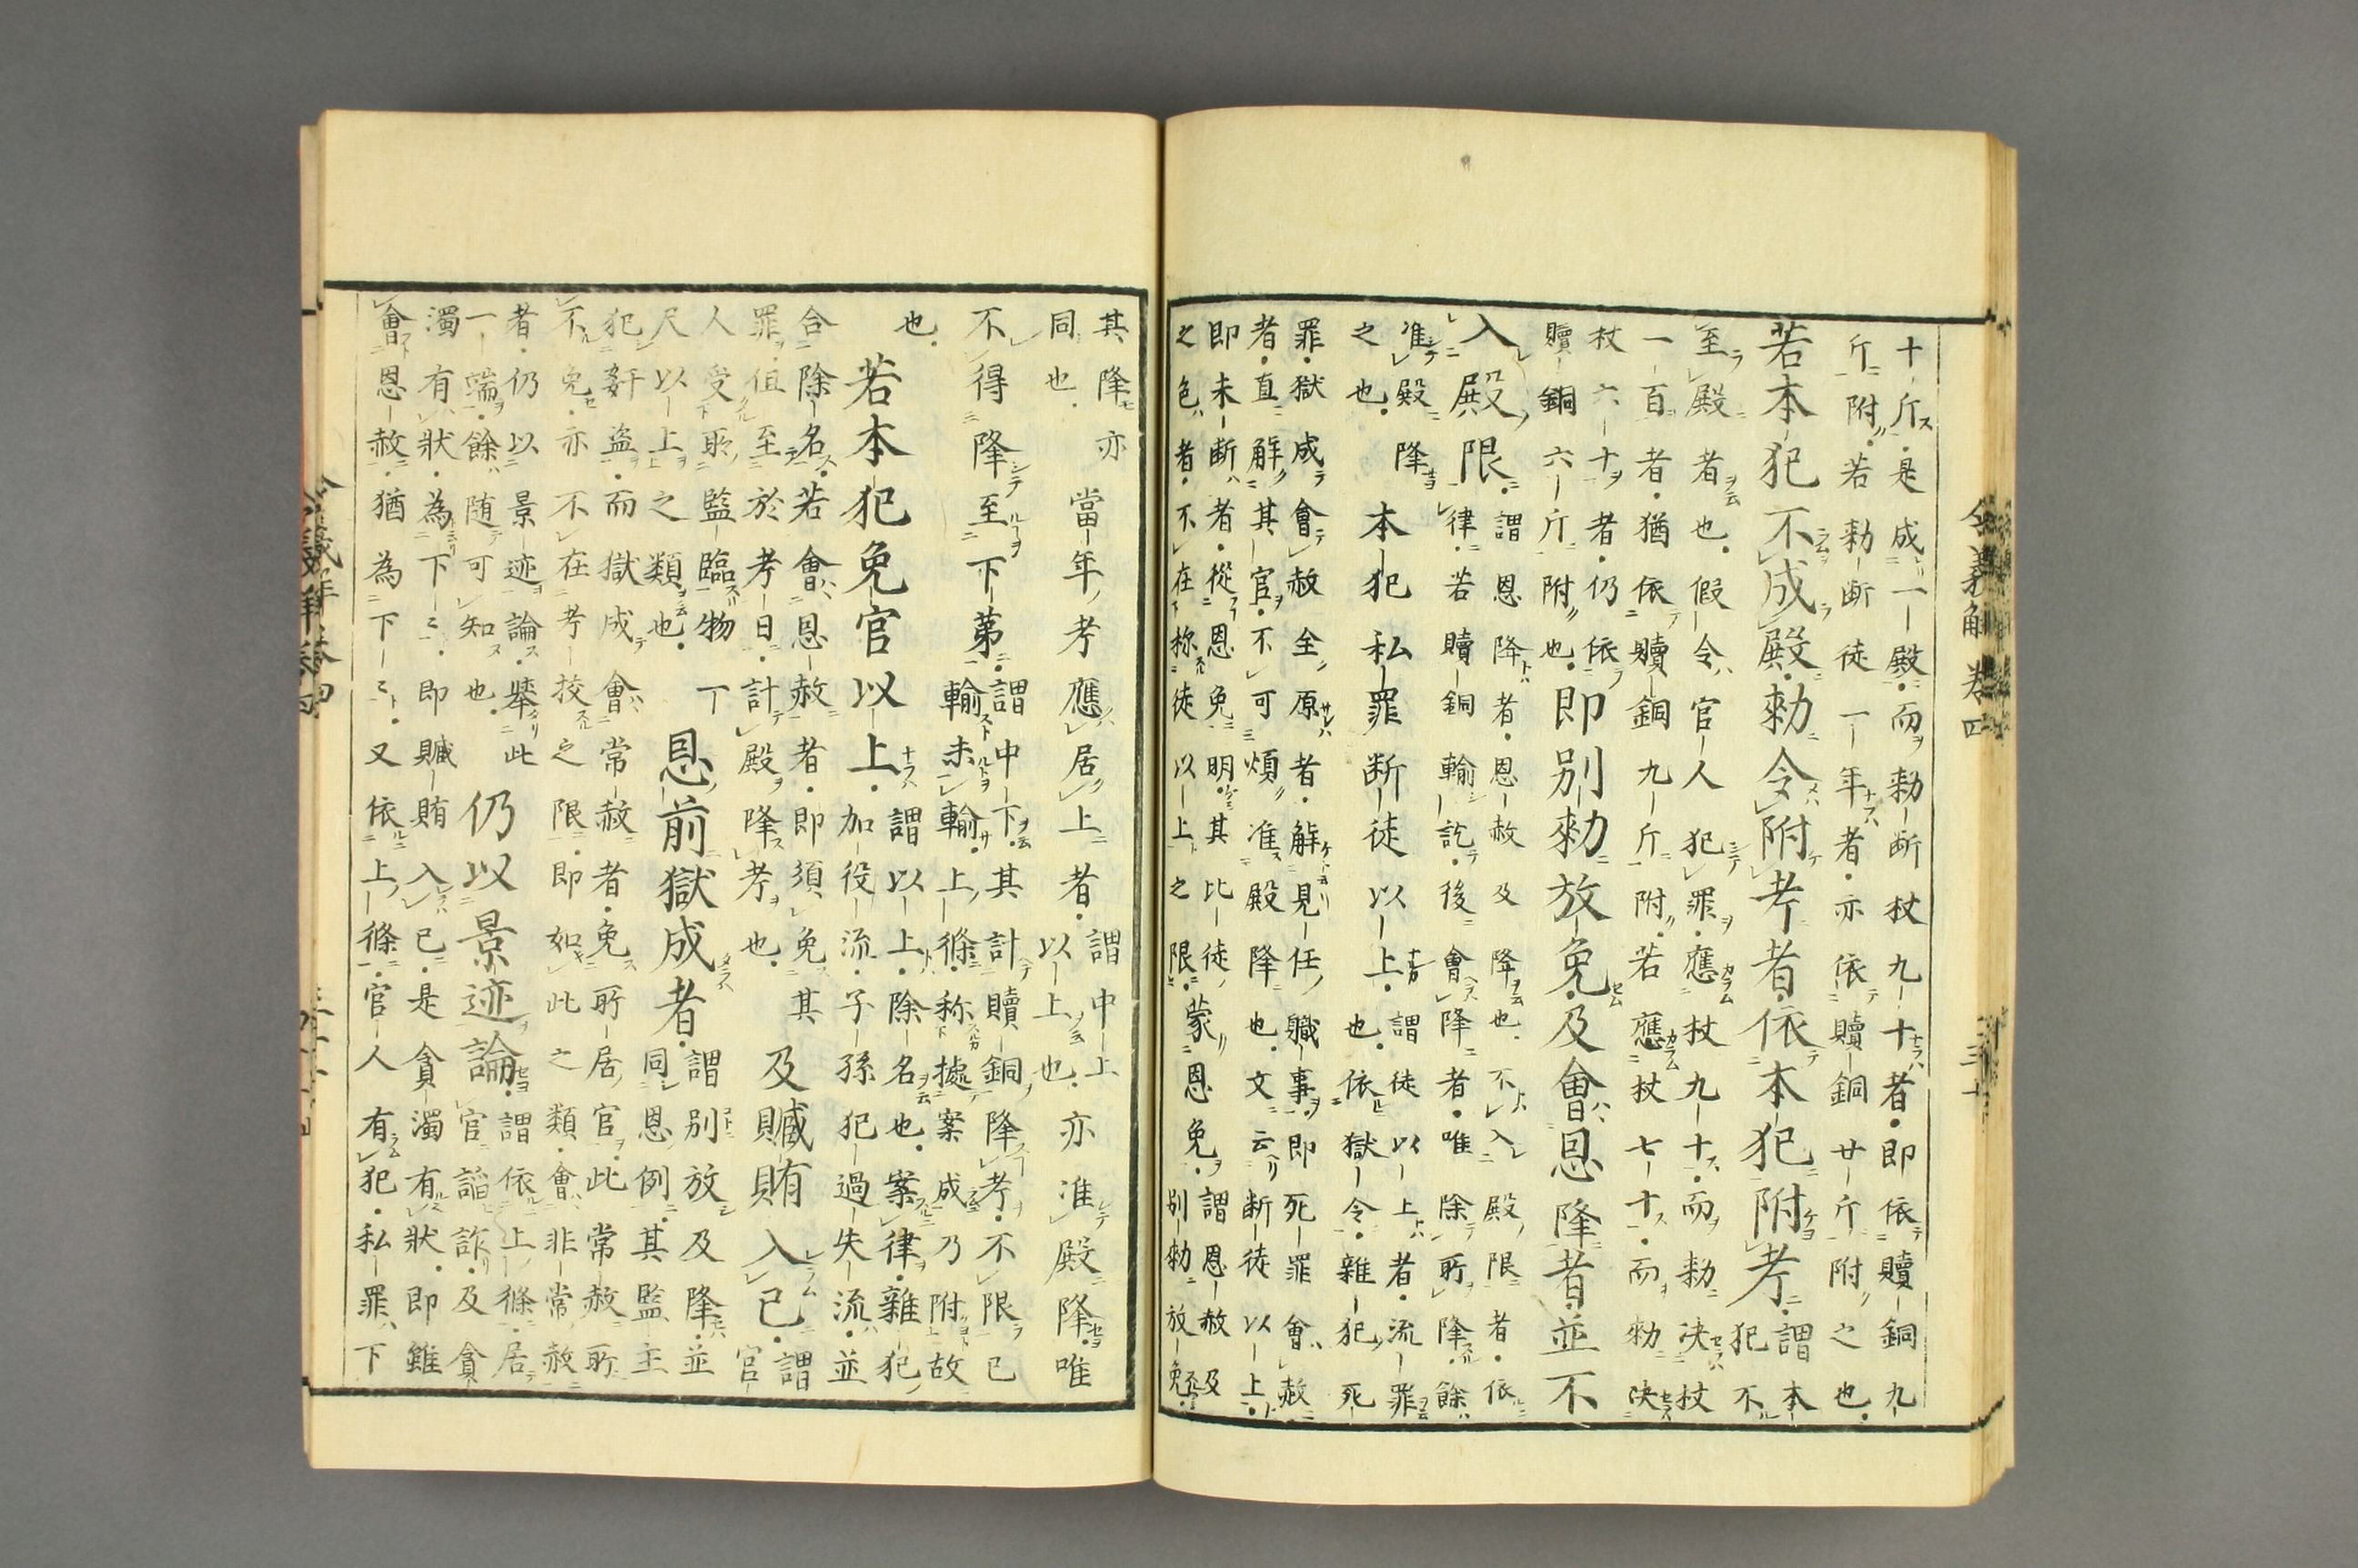 十斤是成一殿而勅断杖九十者即依贖銅九
斤附若勅断徒一年者亦依贖銅廿斤附之也
若本犯不成殿勅令附考者依本犯附考謂本
犯不
至殿者也假令官人犯罪應杖九十而勅決杖
一百者猶依贖銅九斤附若應杖七十而勅決
杖六十者仍依
贖銅六斤附也
即別勅放免及會恩降者並不
入殿限
謂恩降者恩赦及降也不入殿限者依
律若贖銅輸訖後會降者唯除所降餘
准殿降
之也
本犯私罪断徒以上
謂徒以上者流罪
也依獄令雜犯死
罪獄成會赦全原者解見任職事即死罪會赦
者直解其官不可煩准殿降也文云断徒以上
即未断者從恩免明其比徒
之色者不在称徒以上之限
蒙恩免
謂恩赦及
別勅放免
令義解 卷四 三十
其降亦
同也
當年考應居上者
謂中上
以上也
亦准殿降唯
不得降至下第
謂中下其計贖銅降考不限已
輸未輸上條称據案成乃附故
也
若本犯免官以上
謂以上除名也案律雜犯
加役流子孫犯過失流並
合除名若會恩赦者即須免其
罪但至於考日計殿降考也
及贓賄入已
謂
官
人受所監臨物一
尺以上之類也
恩前獄成者
謂別放及降並
同恩例其監主
犯姧盗而獄成會常赦者免所居官此常赦所
不免亦不在考挍之限即如此之類會非常赦
者仍以景迹論擧此
一端餘随可知也
仍以景迹論
謂依上條居
官謟詐及貪
濁有狀為下〻即贓賄入已是貪濁有狀即雖
會恩赦猶為下〻又依上條官人有犯私罪下